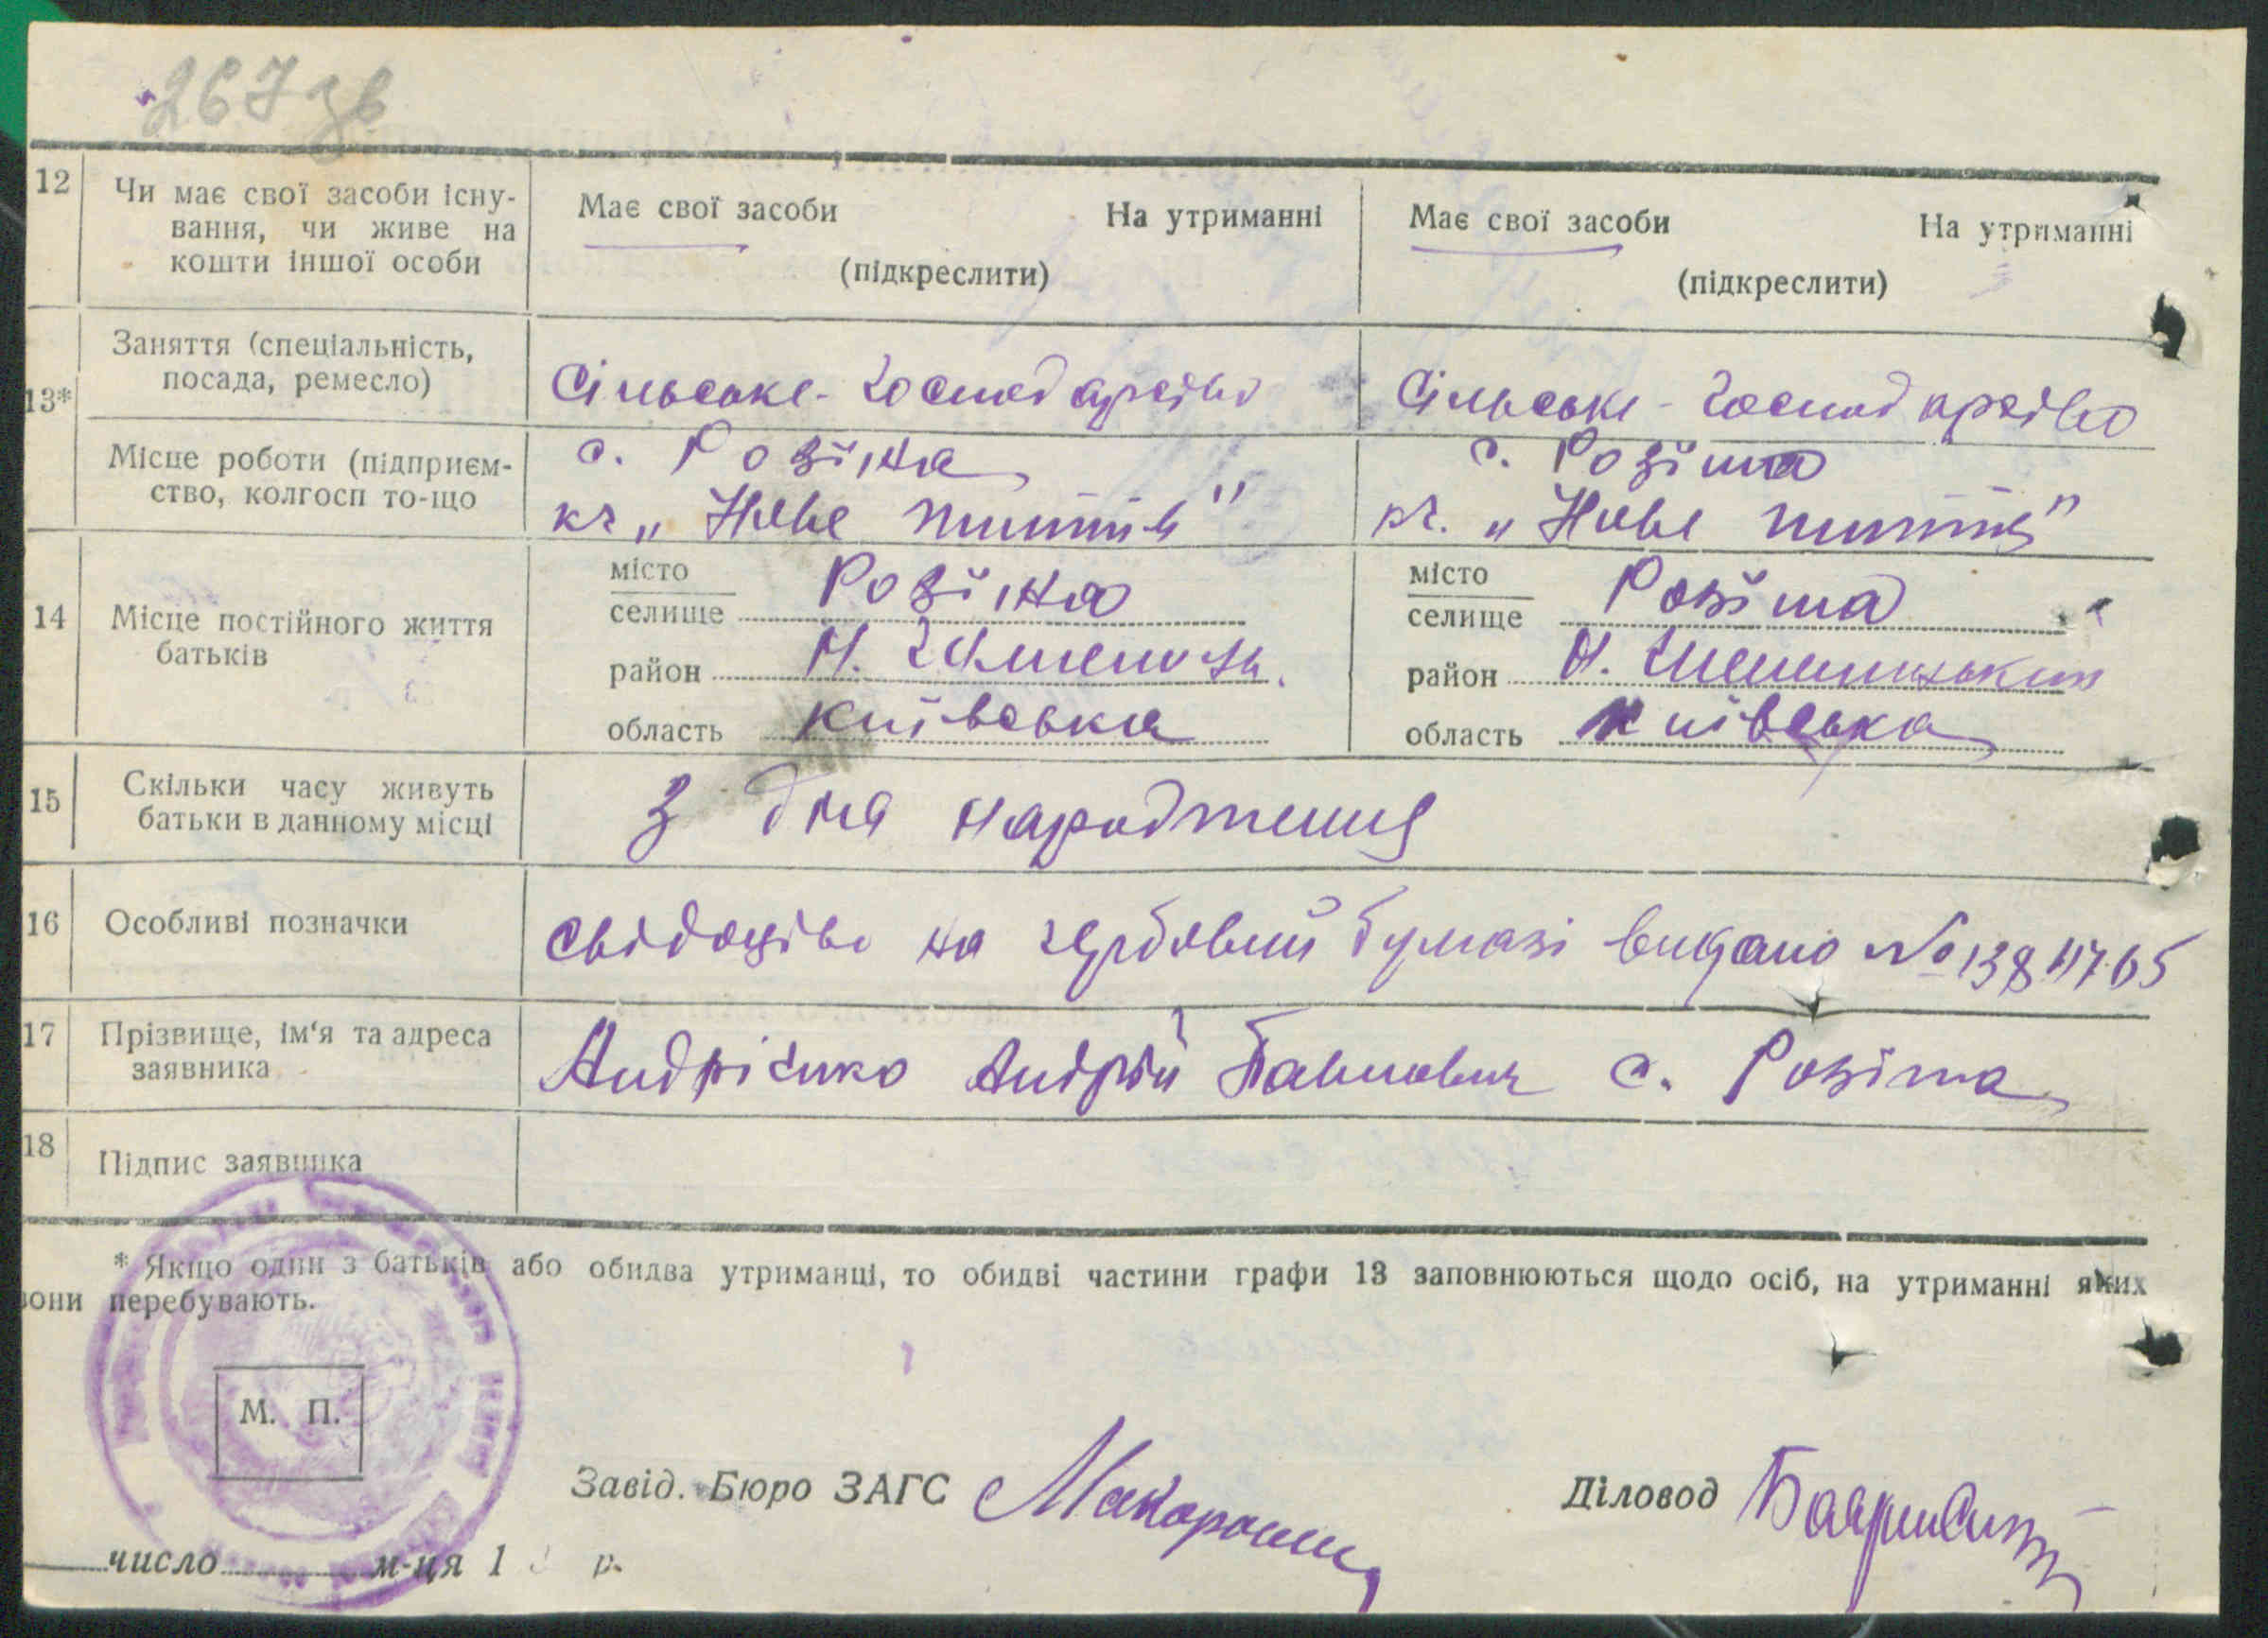 267 зв
12 Чи має свої засоби існу-
вання, чи живе на
кошти іншої особи
Має свої засоби На утриманні
(підкреслити)
Має свої засоби На утриманні
(підкреслити)
13* Заняття (спеціальність,
посада, ремесло)
Сільське-господарство
Сільське-господарство
Місце роботи (підприєм-
ство, колгосп то-що
с. Розіна
кг „Нове життя"
с.
кг. „Нове життя"
14 Місце постійного життя
батьків
місто
селище
район Н.
область Київська
місто
селище
район Н.
область Київська
15 Скільки часу живуть
батьки в данному місці
З дня народження
16 Особливі позначки
свідоцтво на гербовий бумазі видано №
17 Прізвище, ім'я та адреса
заявника
Андрієнко Андрій Павлович с.
18 Підпис заявника
* Якщо один з батьків або обидва утриманці, то обидві частини графи 13 заповнюються щодо осіб, на утриманні яких
вони перебувають.
М. П.
Завід. Бюро ЗАГС
Діловод
число м-ця 1 р.